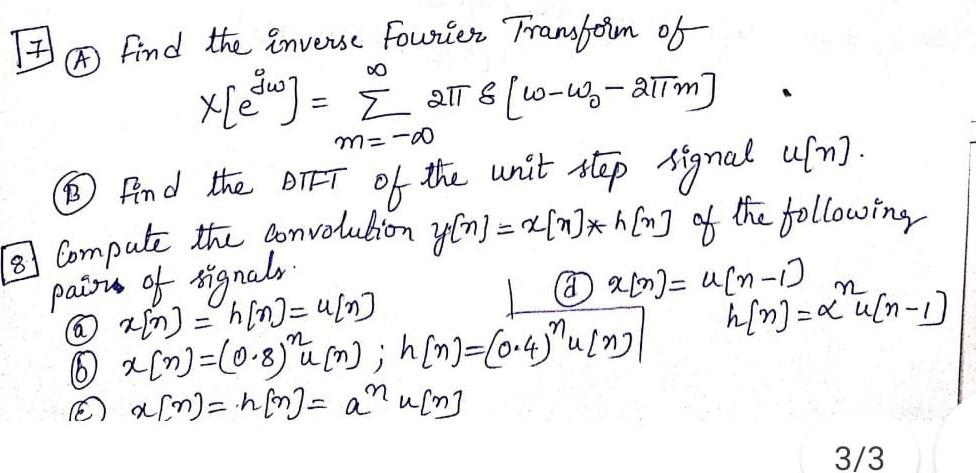 7 (A) Find the inverse Fourier Transform of
X[e^jω] = ∞ Σ m=-∞ 2π δ[ω-ω₀-2πm]
(B) Find the DTFT of the unit step signal u[n].
8 Compute the convolution y[n] = x[n]*h[n] of the following
pairs of signals.
(a) x[n] = h[n] = u[n]
(b) x[n] = (0.8)^n u[n] ; h[n] = (0.4)^n u[n]
(c) x[n] = h[n] = a^n u[n]
(d) x[n] = u[n-1]
h[n] = α^n u[n-1]
3/3